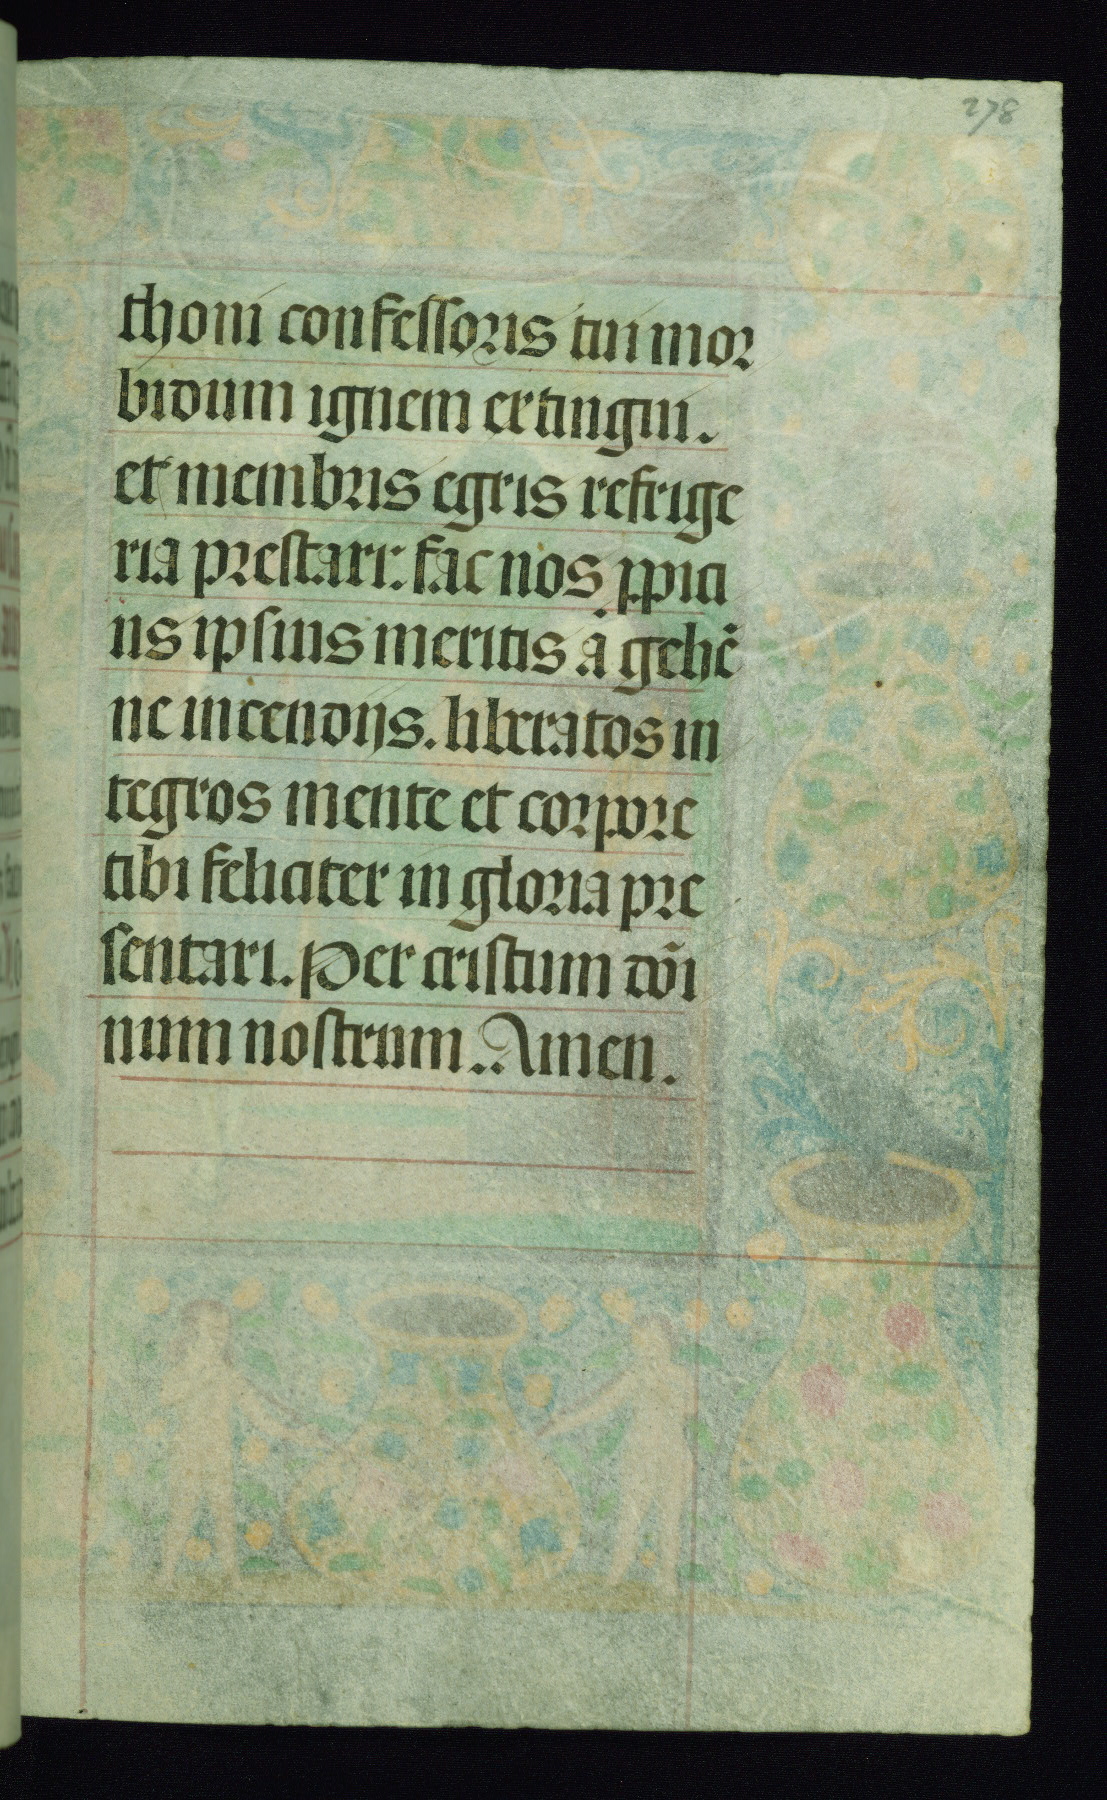 278
thoni confessoris tui mor
bidum ignem extingui.
et membris egris refrige
ria prestari: fac nos ꝓpici
us ipsius meritis a gehē
ne incendijs. liberatos in
tegros mente et corpore
tibi feliciter in gloria pre
sentari. Per cristum dōi
num nostrum.. Amen.